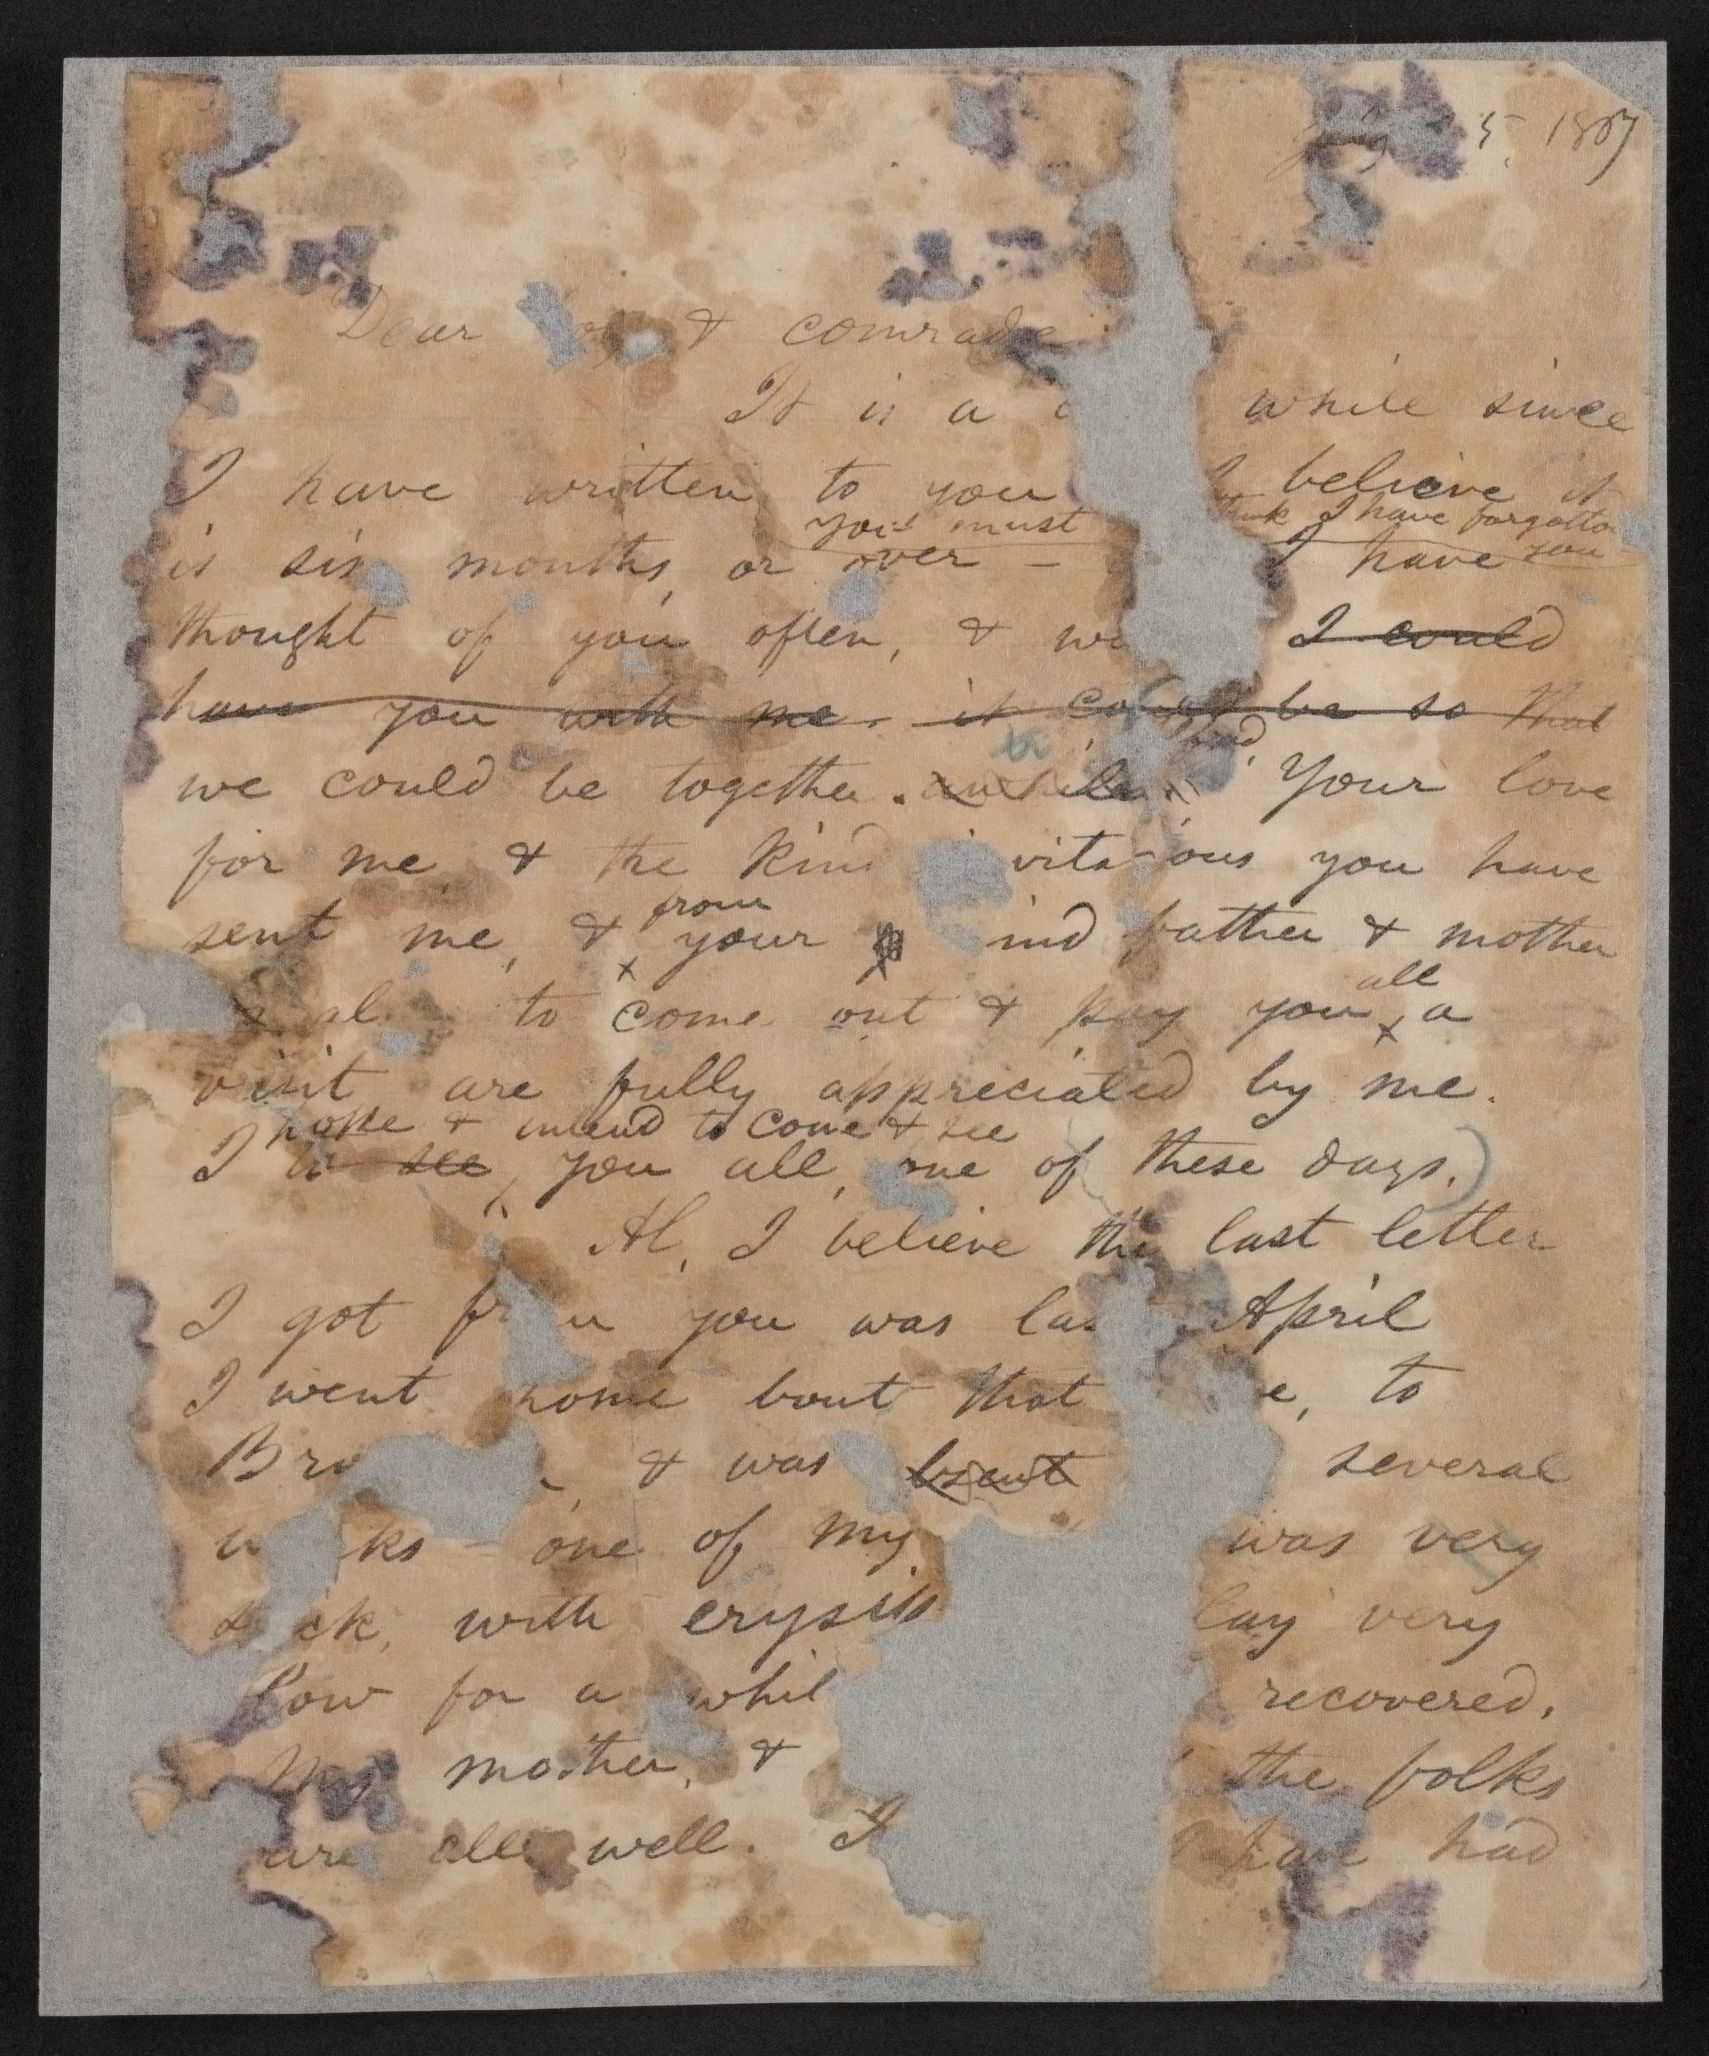 5, 1867
Dear & comrade
It is a while since
I have written to you I believe it
you must think I have forgotten you
is six months, or over – I have
thought of you often, & I could
have you with me. it could be so that
we could be together. awhile. Your love
for me & the kind vitations you have
from
sent me, & your ind father & mother
all
al to come out & pay you a
visit are fully appreciated by me.
hope & intend to come & see
I to see you all, one of these days.
Al, I believe the last letter
I got fr m you was las April
I went home bout that e, to
Bro & was sent several
w ks – one of my was very
s ck, with erysip lay very
low for a whil recovered.
My mother, & the folks
are all well. I I have had